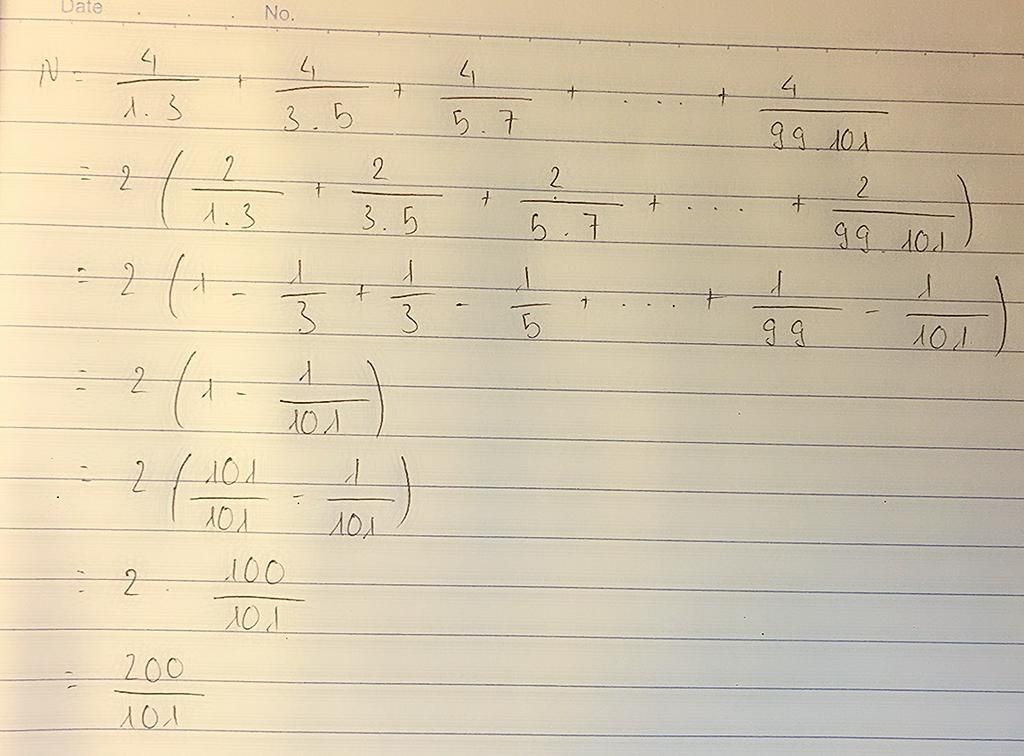 Date . . . No.
N = 4/1.3 + 4/3.5 + 4/5.7 + .... + 4/99.101
= 2 ( 2/1.3 + 2/3.5 + 2/5.7 + .... + 2/99.101 )
= 2 ( 1 - 1/3 + 1/3 - 1/5 + .... + 1/99 - 1/101 )
= 2 ( 1 - 1/101 )
= 2 ( 101/101 - 1/101 )
= 2 . 100/101
= 200/101